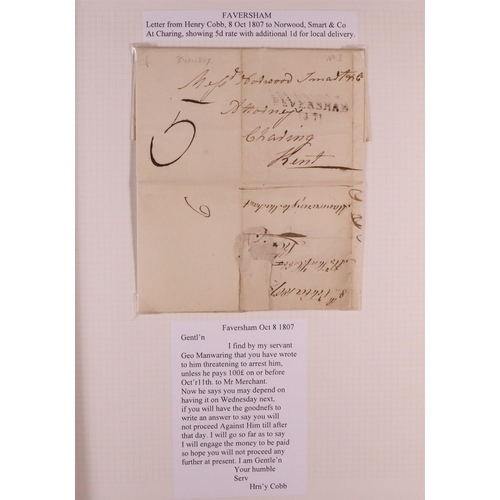 FAVERSHAM
Letter from Henry Cobb, 8 Oct 1807 to Norwood, Smart & Co
At Charing, showing 5d rate with additional 1d for local delivery.
Mess.rs Norwood Smart & Co
Attorneys
FEVERSHAM
Charing
Kent
5
Faversham Oct 8 1807
Gentl'n
I find by my servant
Geo Manwaring that you have wrote
to him threatening to arrest him,
unless he pays 100£ on or before
Oct'r11th. to Mr Merchant.
Now he says you may depend on
having it on Wednesday next,
if you will have the goodnefs to
write an answer to say you will
not proceed Against Him till after
that day. I will go so far as to say
I will engage the money to be paid
so hope you will not proceed any
further at present. I am Gentle'n
Your humble
Serv
Hrn'y Cobb